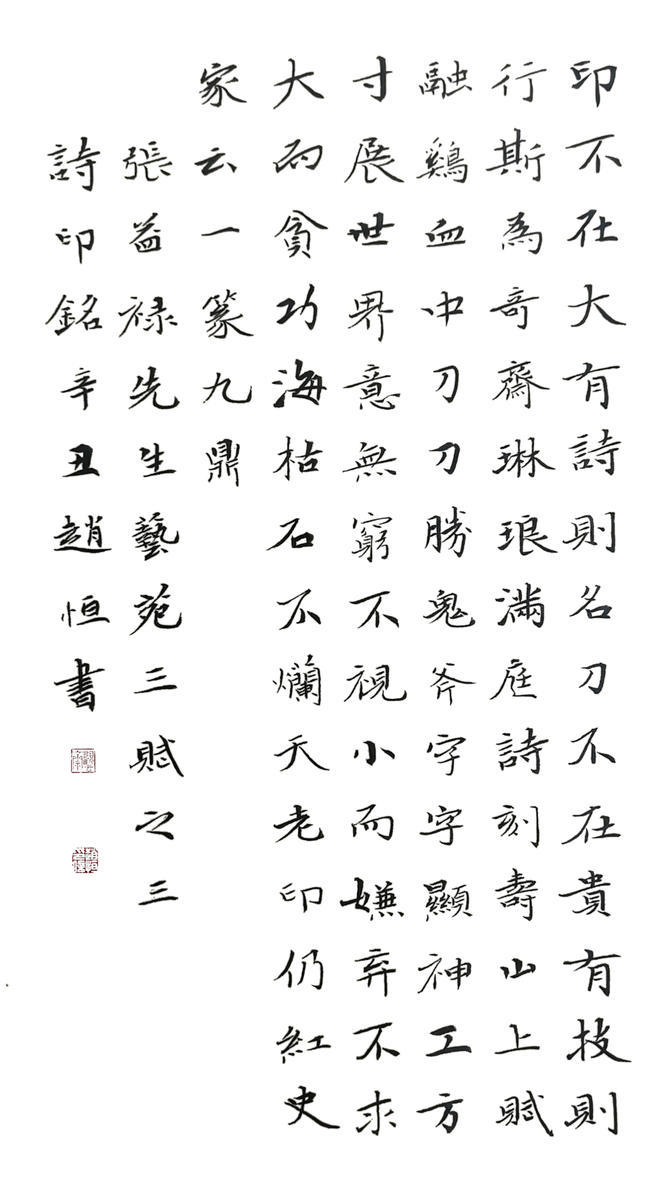 印不在大有詩則名刀不在貴有技則
行斯為奇齋琳琅滿庭詩刻壽山上賦
融鷄血中刀刀勝鬼斧字字顯神工方
寸展世界意無窮不視小而嫌弃不求
大而貪功海枯石不爛天老印仍紅史
家云一篆九鼎
張益祿先生藝苑三賦之三
詩印銘辛丑趙恒書